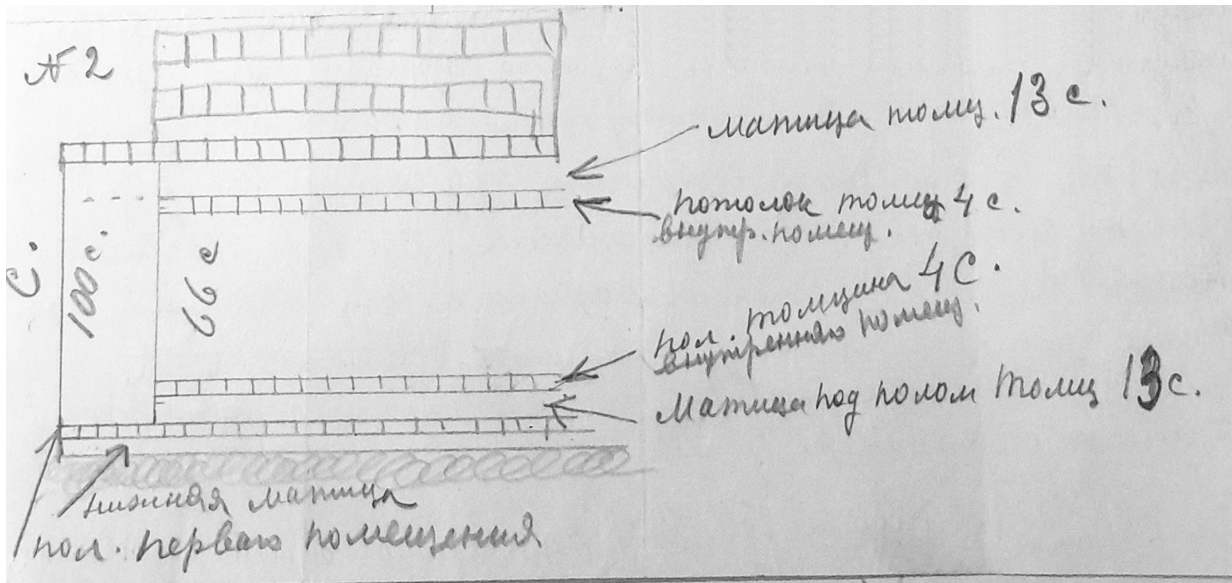 № 2
матица толщ. 13 с.
потолок толщ 4 с.
внутр. помещ.
С.
100 с.
66 с
пол. толщина 4 С.
внутреннаго помещ.
Матица под полом толщ 13 с.
нижная матица
пол. перваго помещения